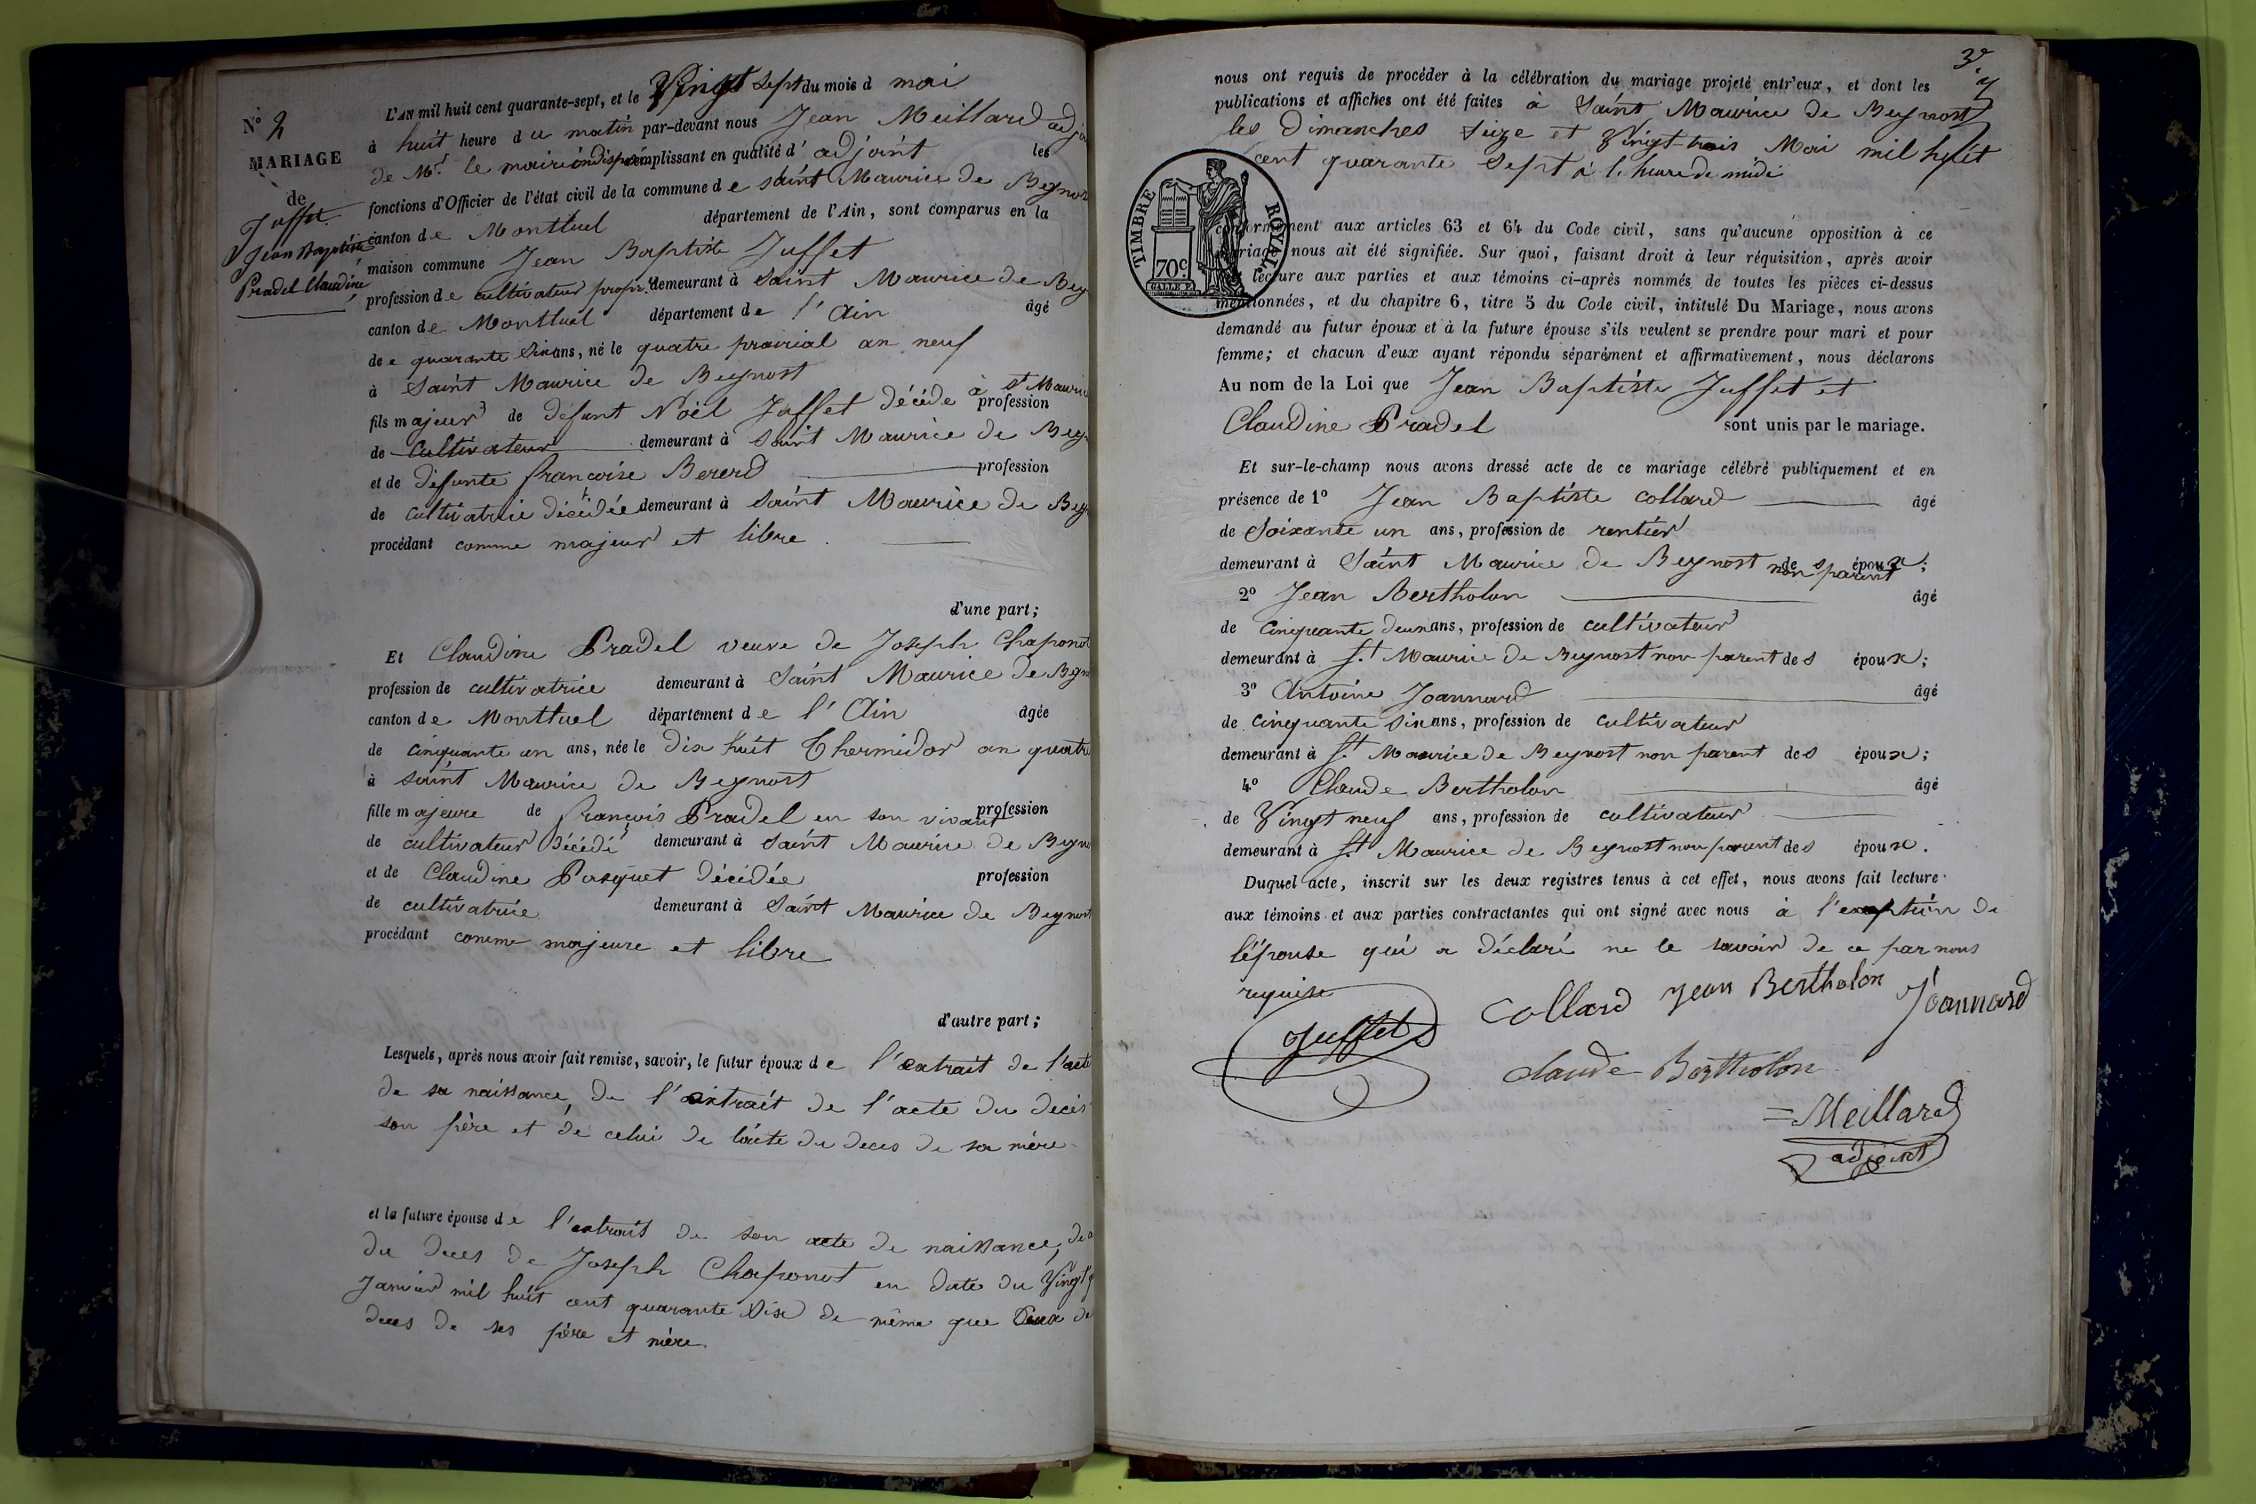 N° 2
MARIAGE
de
Juffet
Jean Baptiste
Pradel Claudine
L'AN mil huit cent quarante-sept, et le Vingt sept du mois d mai
à huit heure du matin par-devant nous Jean Meillard adjoint
de Mr. le maire indisposé remplissant en qualité d' adjoint les
fonctions d'Officier de l'état civil de la commune de saint Maurice de Beynost
canton de Montluel département de l'Ain, sont comparus en la
maison commune Jean Baptiste Juffet
profession de cultivateur propr. demeurant à Saint Maurice de Bey
canton de Montluel département de l'Ain âgé
de quarante six ans, né le quatre prairial an neuf
à Saint Maurice de Beynost
fils majeur de défunt Noël Juffet décédé à St Maurice profession
de cultivateur demeurant à Saint Maurice de Bey
et de défunte françoise Bererd profession
de cultivatrice décédée demeurant à Saint Maurice de Bey
procédant comme majeur et libre
d'une part;
Et Claudine Pradel veuve de Joseph Chaponot
profession de cultivatrice demeurant à Saint Maurice de Beyn
canton de Montluel département de l'Ain âgée
de cinquante un ans, née le dix huit Thermidor an quatre
à saint Maurice de Beynost
fille majeure de françois Pradel en son vivant profession
de cultivateur décédé demeurant à Saint Maurice de Beyn
et de Claudine Pasquet décédée profession
de cultivatrice demeurant à Saint Maurice de Beynost
procédant comme majeure et libre
d'autre part;
Lesquels, après nous avoir fait remise, savoir, le futur époux de l'extrait de l'acte
de sa naissance, de l'extrait de l'acte du décès
son père et de celui de l'acte du deces de sa mère
et la future épouse de l'extrait de son acte de naissance, de
du deces de Joseph Chaponot en date du Vingt
Janvier mil huit cent quarante six de même que Ceux de
deces de ses père et mère.
3e
nous ont requis de procéder à la célébration du mariage projeté entr'eux, et dont les
publications et affiches ont été faites à Saint Maurice de Beynost
les Dimanches Seize et Vingt-trois Mai mil huit
cent quarante Sept à l'heure de midi
TIMBRE ROYAL
70c.
conformément aux articles 63 et 64 du Code civil, sans qu'aucune opposition à ce
mariage nous ait été signifiée. Sur quoi, faisant droit à leur réquisition, après avoir
lecture aux parties et aux témoins ci-après nommés de toutes les pièces ci-dessus
mentionnées, et du chapitre 6, titre 5 du Code civil, intitulé Du Mariage, nous avons
demandé au futur époux et à la future épouse s'ils veulent se prendre pour mari et pour
femme; et chacun d'eux ayant répondu séparément et affirmativement, nous déclarons
Au nom de la Loi que Jean Baptiste Juffet et
Claudine Pradel sont unis par le mariage.
Et sur-le-champ nous avons dressé acte de ce mariage célébré publiquement et en
présence de 1° Jean Baptiste Collard âgé
de Soixante un ans, profession de rentier
demeurant à Saint Maurice de Beynost non parent des époux;
2° Jean Bertholon âgé
de Cinquante deux ans, profession de cultivateur
demeurant à St Maurice de Beynost non parent des époux;
3° Antoine Joannard âgé
de cinquante six ans, profession de cultivateur
demeurant à St Maurice de Beynost non parent des époux;
4° Claude Bertholon âgé
de Vingt neuf ans, profession de cultivateur
demeurant à St Maurice de Beynost non parent des époux.
Duquel acte, inscrit sur les deux registres tenus à cet effet, nous avons fait lecture
aux témoins et aux parties contractantes qui ont signé avec nous à l'exception de
l'épouse qui a déclaré ne le savoir de ce par nous
requise
Juffet Collard Jean Bertholon Joannard
claude Bertholon
Meillard
adjoint